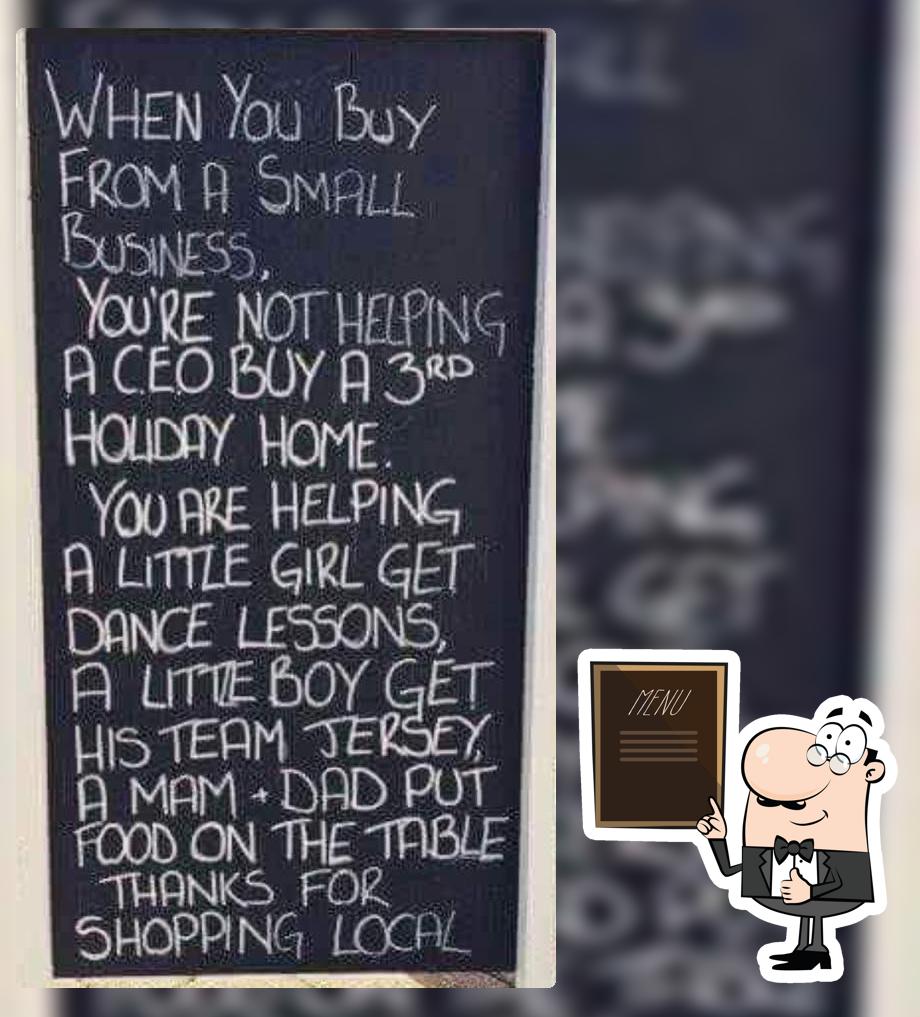 WHEN YOU BUY
FROM A SMALL
BUSINESS,
YOU'RE NOT HELPING
A C.E.O BUY A 3RD
HOLIDAY HOME.
YOU ARE HELPING
A LITTLE GIRL GET
DANCE LESSONS,
A LITTLE BOY GET
HIS TEAM JERSEY,
A MAM + DAD PUT
FOOD ON THE TABLE
THANKS FOR
SHOPPING LOCAL
MENU